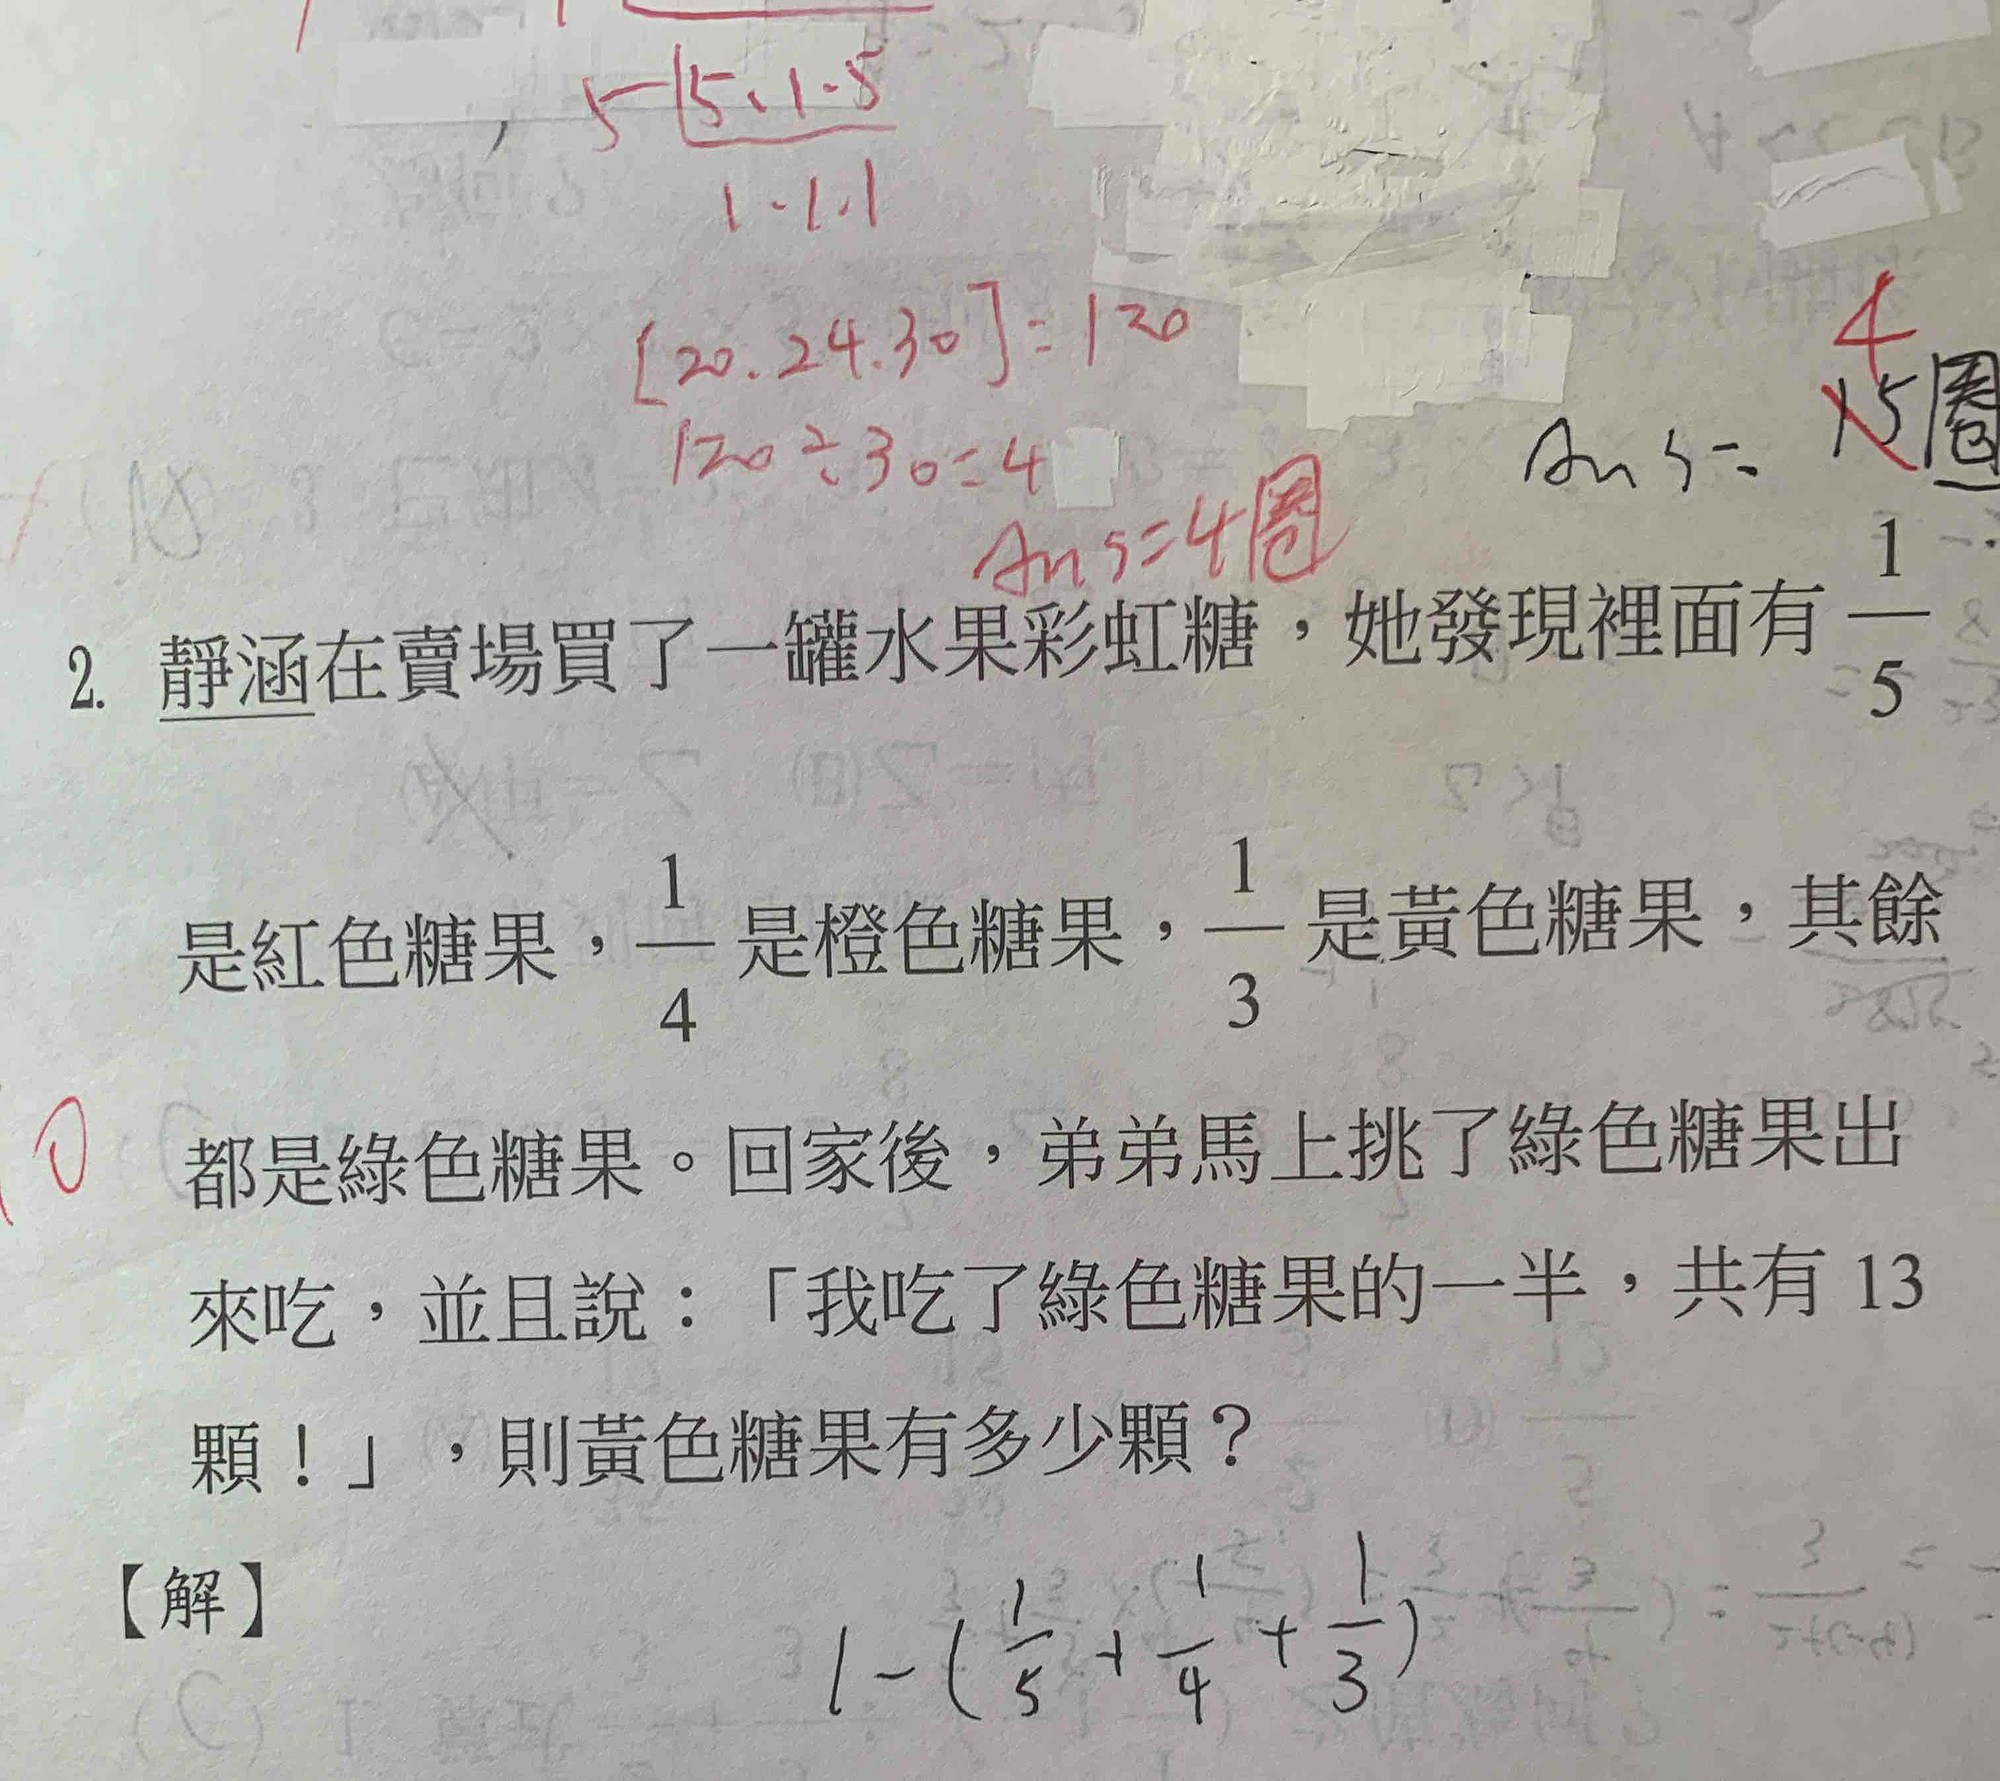 5 5、1.5
1.1.1
[20.24.30]=120
120÷30=4
4
Ans=15圈
Ans=4圈
2. 靜涵在賣場買了一罐水果彩虹糖，她發現裡面有 1/5
是紅色糖果，1/4 是橙色糖果，1/3 是黃色糖果，其餘
都是綠色糖果。回家後，弟弟馬上挑了綠色糖果出
來吃，並且說：「我吃了綠色糖果的一半，共有 13
顆！」，則黃色糖果有多少顆？
【解】
1-(1/5+1/4+1/3)